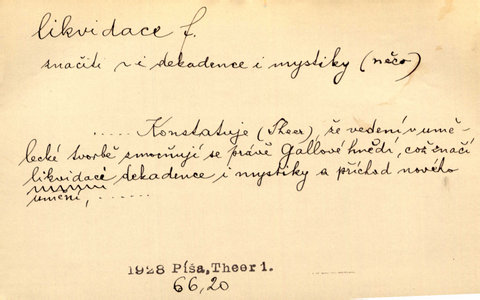 likvidace f.
značiti ~i dekadence i mystiky (něco)
...... Konstatuje (Theer), že vedení v umě-
lecké tvorbě zmocňují se právě Gallové hnědí, což značí
likvidaci dekadence i mystiky a příchod nového
umění, ......
1928 Píša, Theer 1.
66,20